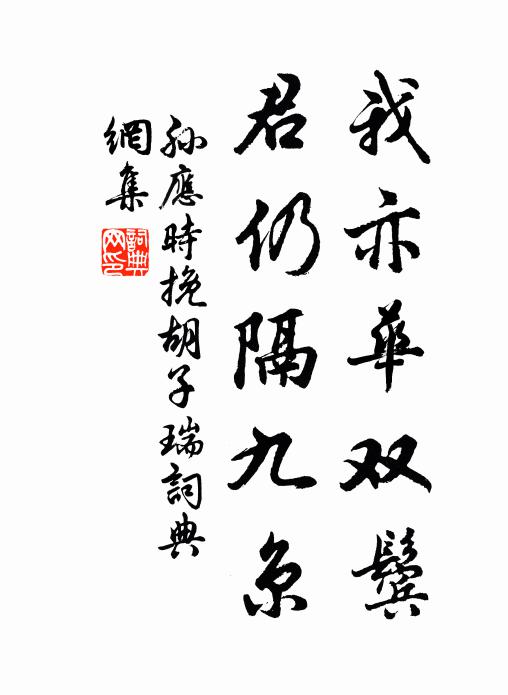 我亦華双鬓
君仍隔九京
孙應時挽胡子瑞詞典
網集
詞典網印